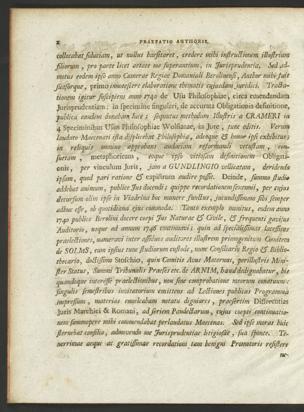 x PRAEFATIO AUTHORIS.
collocabat fiduciam, ut nullus haesitaret, credere mihi instructionem illustrium
filiorum, pro parte licet aetate me superantium, in Jurisprudentia. Sed ad-
motus eodem ipso anno Camerae Regiae Domaniali Berolinensi, Author mihi fuit
suasorque, primo innotescere elaboratione thematis cujusdam juridici. Tradita-
tionem igitur suscipiens anno 1740 de Usu Philosophiae, circa emendandam
Jurisprudentiam: in specimine singulari, de accurata Obligationis definitione,
publica eandem donabam luce; sequutus methodum Illustris a CRAMERI in
4 Speciminibus Usus Philosophiae Wolfianae, in Jure, ante editis. Verum
laudato Maecenati ista displicebat Philosophia, adeoque & hanc ipsi exhibitus
in reliquis omnino approbans audaciam reformandi vetustam, con-
suetam, metaphoricam, eoque ipso vitiosam definitionem Obligati-
onis, per vinculum Juris, jam a GUNDLINGIO vellicatam, deridendo
ipsam, quod pari ratione & capistrum audire posset. Deinde, summo studio
addebat animum, publice Jus docendi; quippe recordationem foventi, per cujus
decursum alios ipse in Viadrina hoc munere functus, jucundissimum illi semper
adhuc esse, ob quotidiani ejus commoda. Tanto exemplo monitus, eodem anno
1740 publice Berolini docere coepi Jus Naturae & Civile, & frequenti gavisus
Auditorio, usque ad annum 1746 continuavi; quin ad specialissimas laetissimus
praelectiones, numeravi inter assiduos auditores illustrem primogenitum Comitem
de SOLMS, cum ipsius tum studiorum custode, nunc Consiliario Regio & Biblio-
thecario, doctissimo Stoschio, quin Comitis Avus Maternus, perillustris Mini-
ster Status, Summi Tribunalis Praeses etc. de ARNIM, haud dedignabatur, hic
quandoque interesse praelectionibus, non sine comprobatione navorum conatuum;
singulis semestribus invitatorium emittens ad Lectiones publicus Programma
impressum, materias enucleabam notatu digniores, praesertim Differentias
Juris Marchici & Romani, ad seriem Pandectarum, cujus coepti continuatio-
nem summopere mihi commendabat perlaudatus Maecenas. Sed ipse moras huic
sternebat consilio, admovendo me Jurisprudentiae beligestae, sua sponte. Te-
nerrimae aeque ac gratissimae recordationi tam benigni Promotoris resistere
ne-